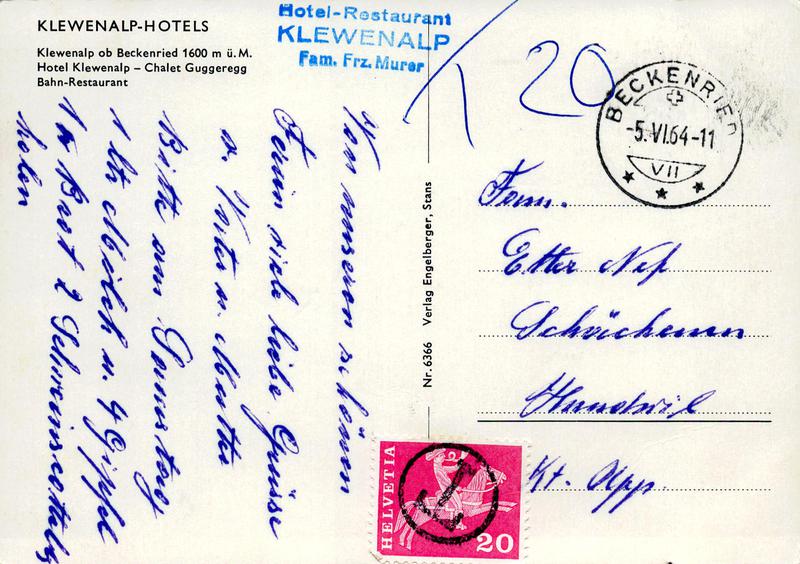 KLEWENALP-HOTELS
Klewenalp ob Beckenried 1600 m ü. M.
Hotel Klewenalp – Chalet Guggeregg
Bahn-Restaurant
Hotel-Restaurant
KLEWENALP
Fam. Frz. Murer
T 20
BECKENRIED
-5.VI.64-11
VII
Von unseren schönen
Ferien viele liebe Grüsse
v. Vater u. Mutter
Bitte am Samstag
1 ltr Milch u. 4 Gipfel
1 Brot 2
holen
Nr. 6366 Verlag Engelberger, Stans
Fam.
Etter Nef
Hundwil
Kt. App.
HELVETIA
20
T